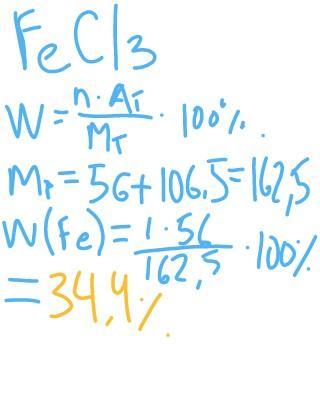 FeCl3
W = n · Ar / Mr · 100%.
Mr = 56 + 106,5 = 162,5
W(Fe) = 1 · 56 / 162,5 · 100%
= 34,4%.